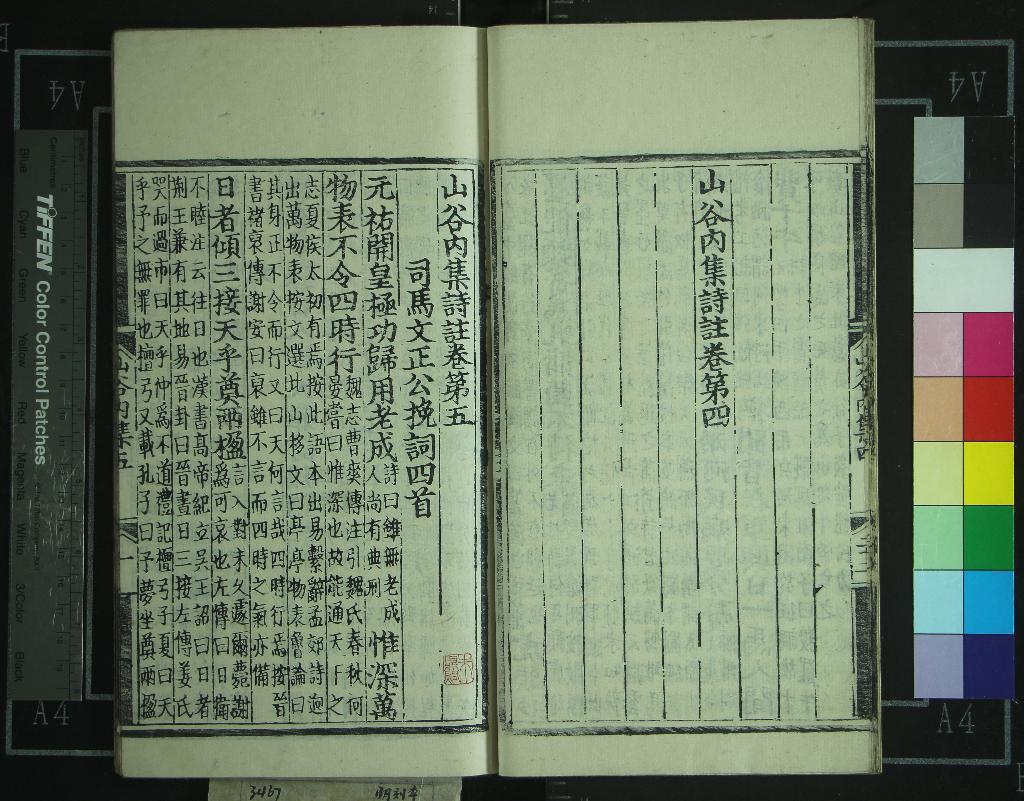 山谷内集詩註卷第四
山谷内集詩註卷第五
司馬文正公挽詞四首
元祐開皇極功歸用老成詩曰雖無老成人尚有典刑惟深萬
物表不令四時行魏志曹爽傳注引魏氏春秋何晏嘗曰惟深也故能通天下之
志夏侯太初有焉按此語本出易繫辭孟郊詩迥
出萬物表按文選北山移文曰亭亭物表魯論曰
其身正不令而行又曰天何言哉四時行焉按晉
書褚裒傳謝安曰裒雖不言而四時之氣亦備
日者傾三接天乎奠兩楹言入對未久遽爾薨謝爲可哀也左傳曰旧衛
不睦注云往日也漢書高帝紀立吴王詔曰日者
荆王兼有其地易晉卦曰晉晝日三接左傳姜氏
哭而過市曰天乎仲爲不道禮記檀弓子夏曰天
乎予之無罪也檀弓又載孔子曰予夢坐奠兩楹
山谷内集五
一
3467
明刻本
TIFFEN Color Control Patches
Blue
Cyan
Green
Yellow
Red
Magenta
White
3/Color
Black
Centimetres
A4
A4
A4
A4